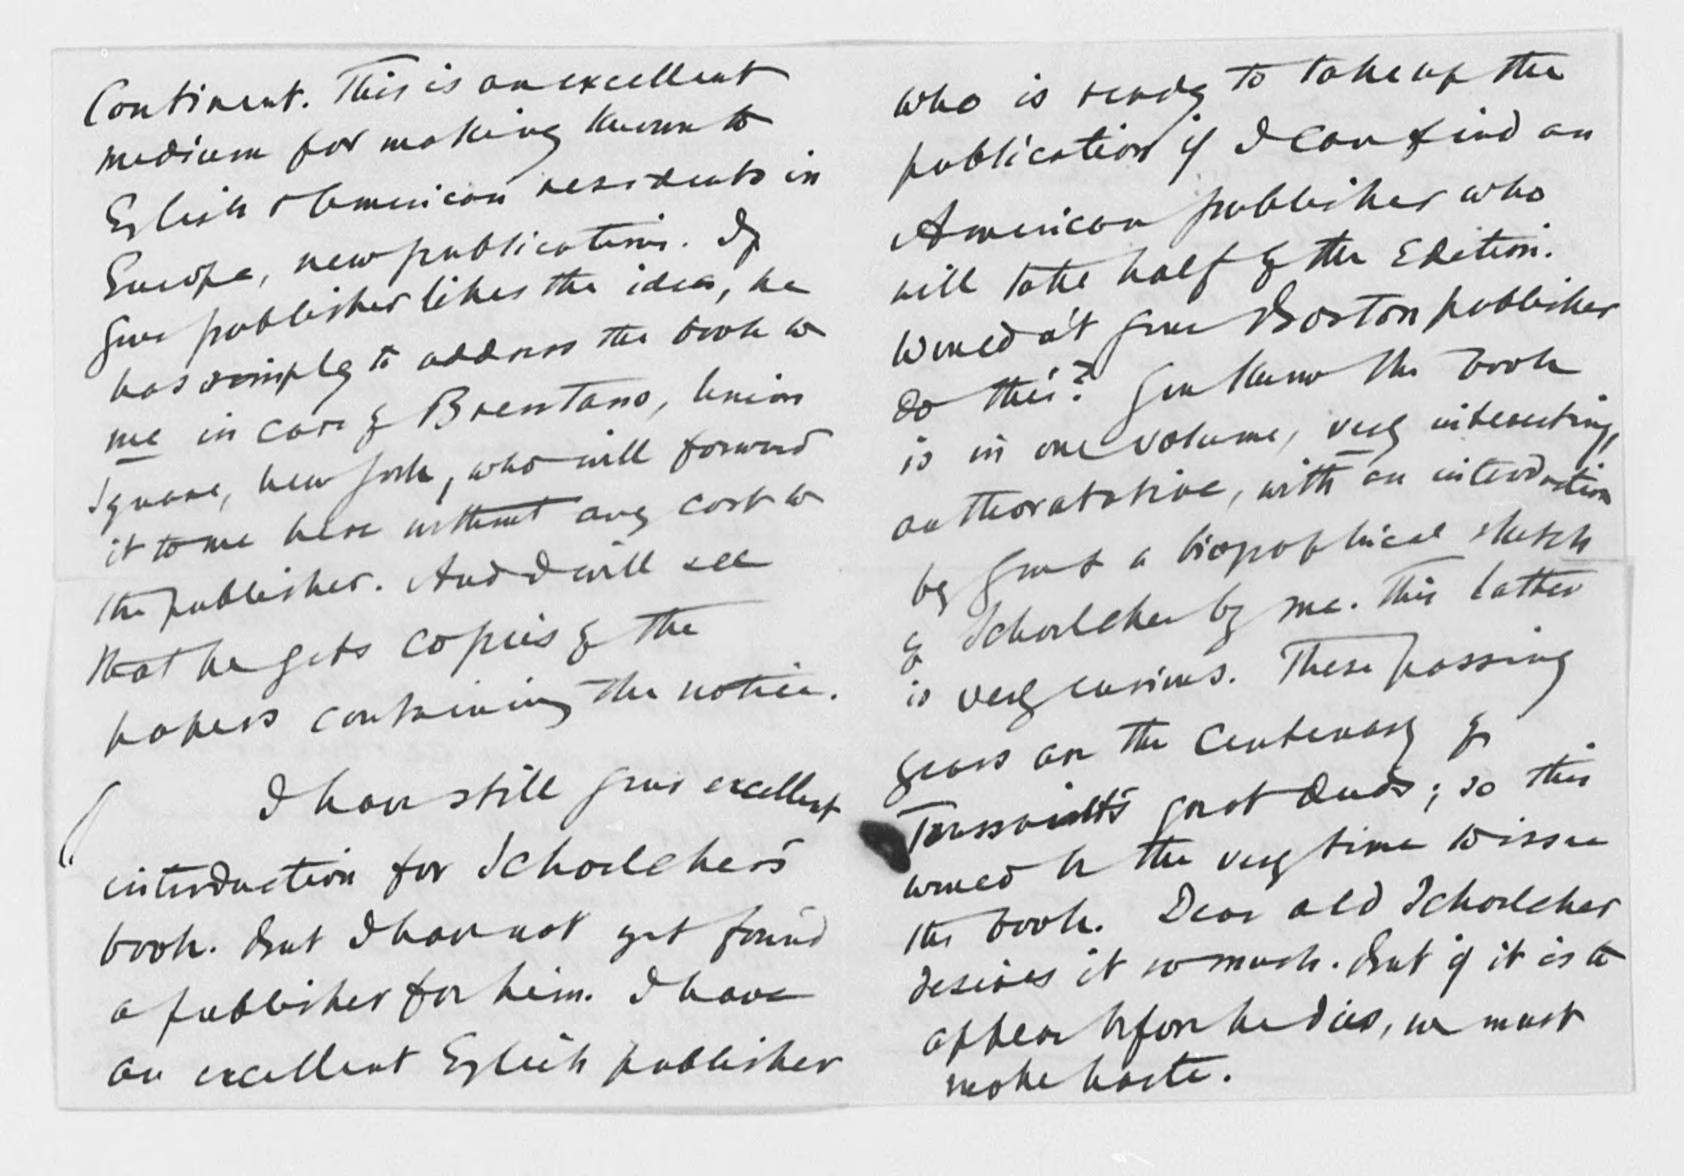 Continent. This is an excellent
medium for making known to
English & American residents in
Europe, new publications. If
your publisher likes the idea, he
has simply to address the book to
me in care of Brentano, Union
Square, New York, who will forward
it to me here without any cost to
the publisher. And I will see
that he gets copies of the
papers containing the notice.
I have still your excellent
introduction for Schoelcher's
book. But I have not yet found
a publisher for him. I have
an excellent English publisher
who is ready to take up the
publication if I can find an
American publisher who
will take half of the Edition.
Would n't your Boston publisher
do this? You know the book
is in one volume, very interesting,
authoratative, with an introduction
by you & a biographical sketch
of Schoelcher by me. This latter
is very curious. These passing
years are the centenary of
Toussaint's great deeds; so this
would be the very time to issue
the book. Dear old Schoelcher
desires it so much. But if it is to
appear before he dies, we must
make haste.